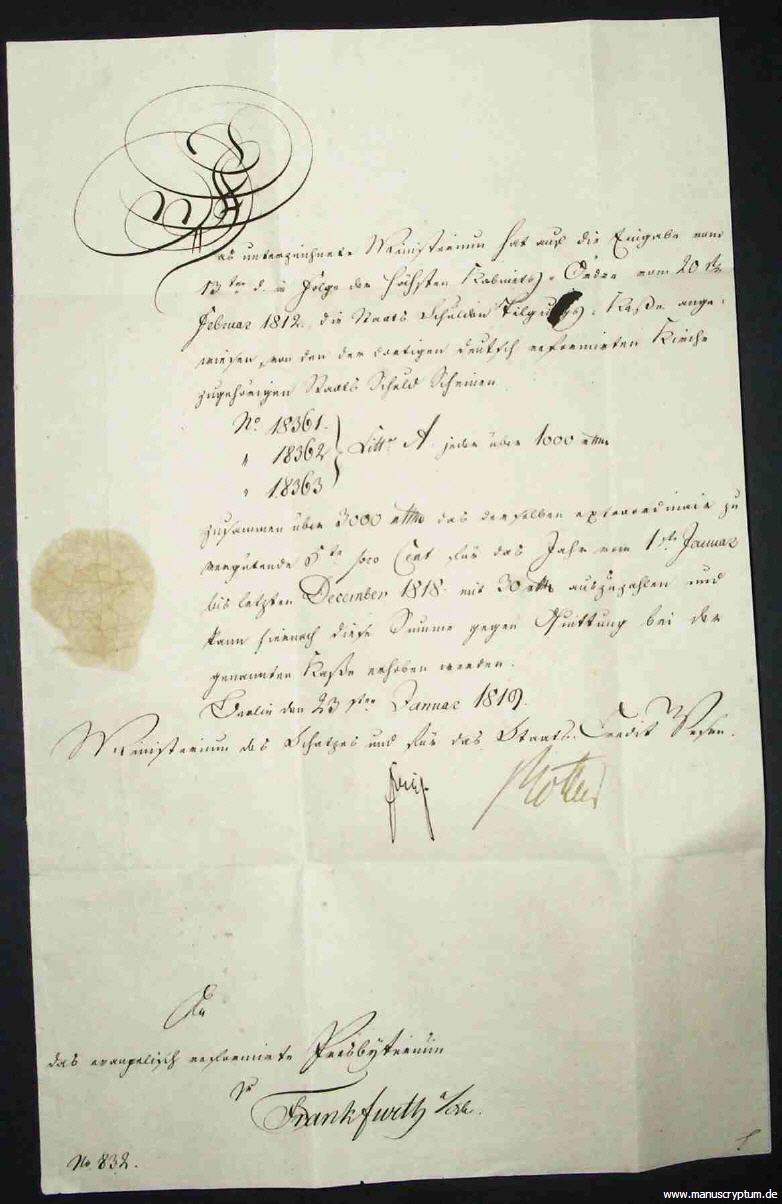 Das unterzeichnete Ministerium hat auf die Eingabe vom
13ten d. in Folge der höchsten Kabinets-Ordre vom 20ten
Februar 1812. die Staats Schulden Tilgungs-Kasse ange-
wiesen, von den der dortigen deutsch reformirten Kirche
zugehörigen Staats Schuld Scheinen
No. 18361.
" 18362 Littr. A. jeder über 1000 rthlr
" 18363
zusammen über 3000 rthlr das denselben extraordinair zu
vergütende 5te pro Cent für das Jahr vom 1sten Januar
bis letzten December 1818. mit 30 rthlr auszuzahlen und
kann hiernach diese Summe gegen Quittung bei der
genannten Kasse erhoben werden.
Berlin den 23sten Januar 1819.
Ministerium des Schatzes und für das Staats-Credit Wesen.
Rother
An
das evangelisch reformirte Presbyterium
zu
Frankfurth a/Oder.
No. 832.
www.manuscryptum.de